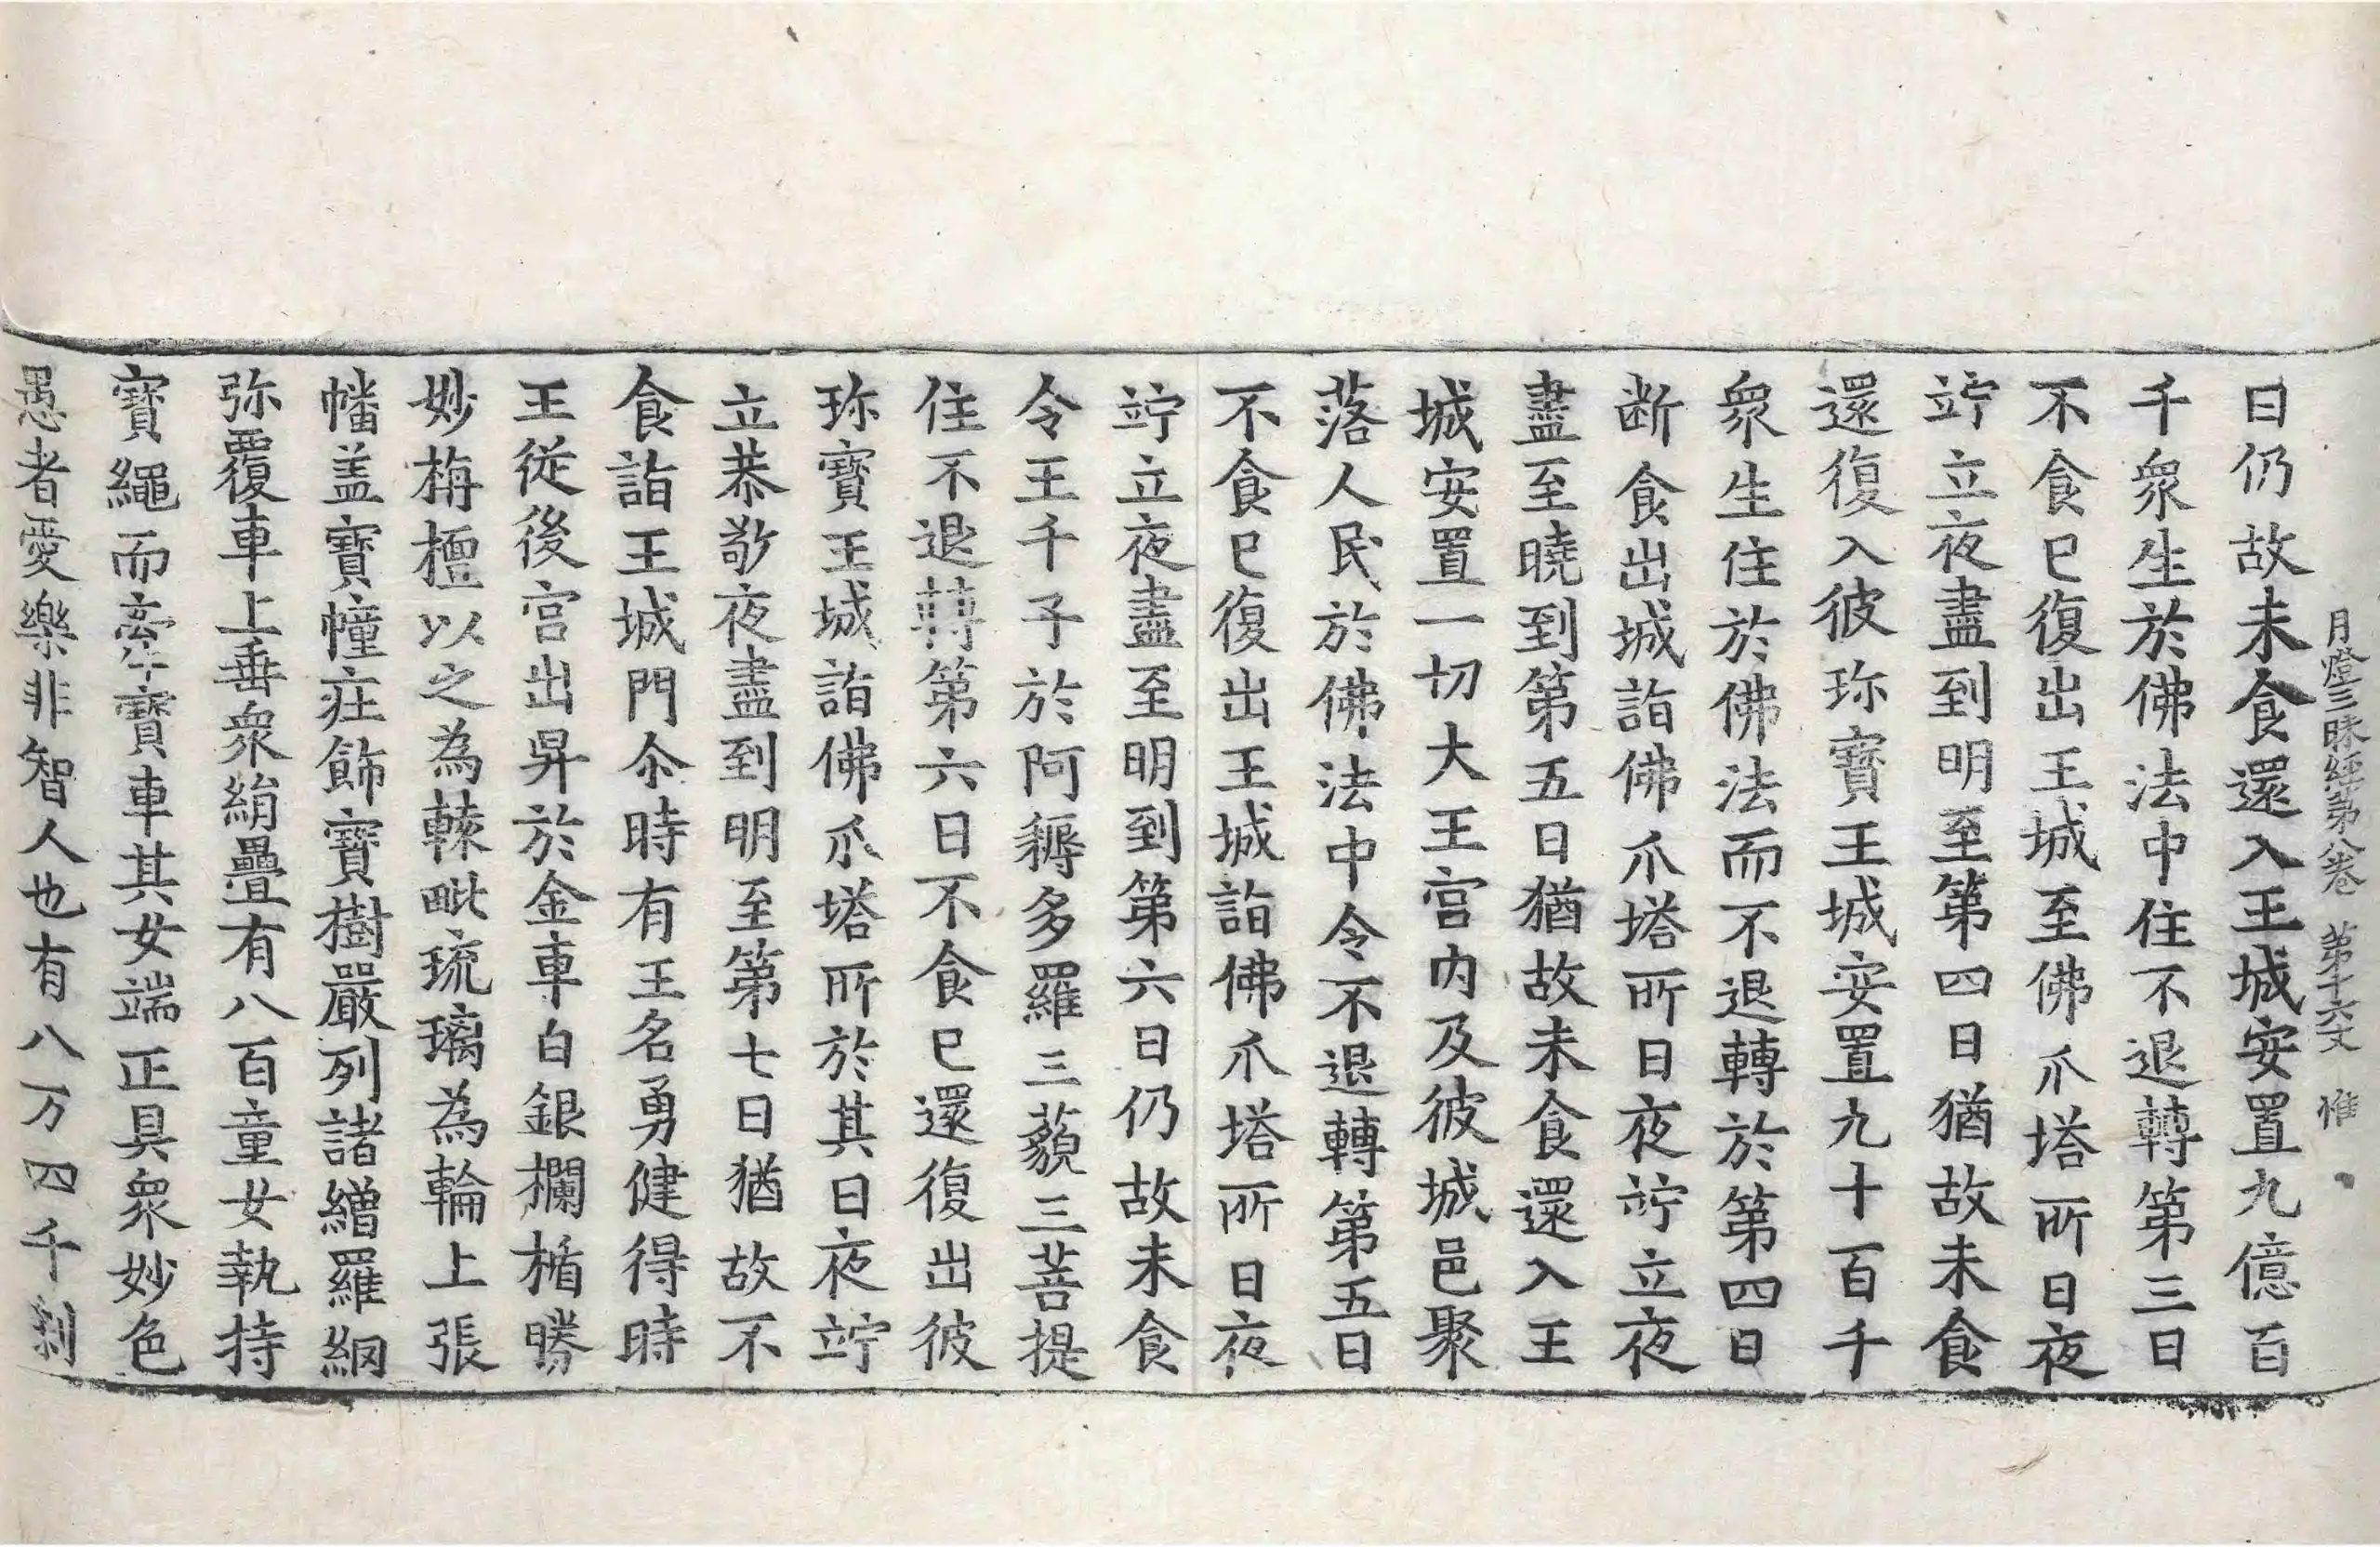 月燈三昧經第八卷　第十六丈　惟
日仍故未食還入王城安置九億百
千衆生於佛法中住不退轉第三日
不食已復出王城至佛爪塔所日夜
竚立夜盡到明至第四日猶故未食
還復入彼珎寶王城安置九十百千
衆生住於佛法而不退轉於第四日
断食出城詣佛爪塔所日夜竚立夜
盡至曉到第五日猶故未食還入王
城安置一切大王宮内及彼城邑聚
落人民於佛法中令不退轉第五日
不食已復出王城詣佛爪塔所日夜
竚立夜盡至明到第六日仍故未食
令王千子於阿耨多羅三藐三菩提
住不退轉第六日不食已還復出彼
珎寶王城詣佛爪塔所於其日夜竚
立恭敬夜盡到明至第七日猶故不
食詣王城門尒時有王名勇健得時
王從後宮出昇於金車白銀欄楯勝
妙栴檀以之為轅毗琉璃為輪上張
幡盖寶幢莊飾寶樹嚴列諸繒羅網
弥覆車上垂衆絹疊有八百童女執持
寶繩而牽寶車其女端正具衆妙色
愚者愛樂非智人也有八万四千刹